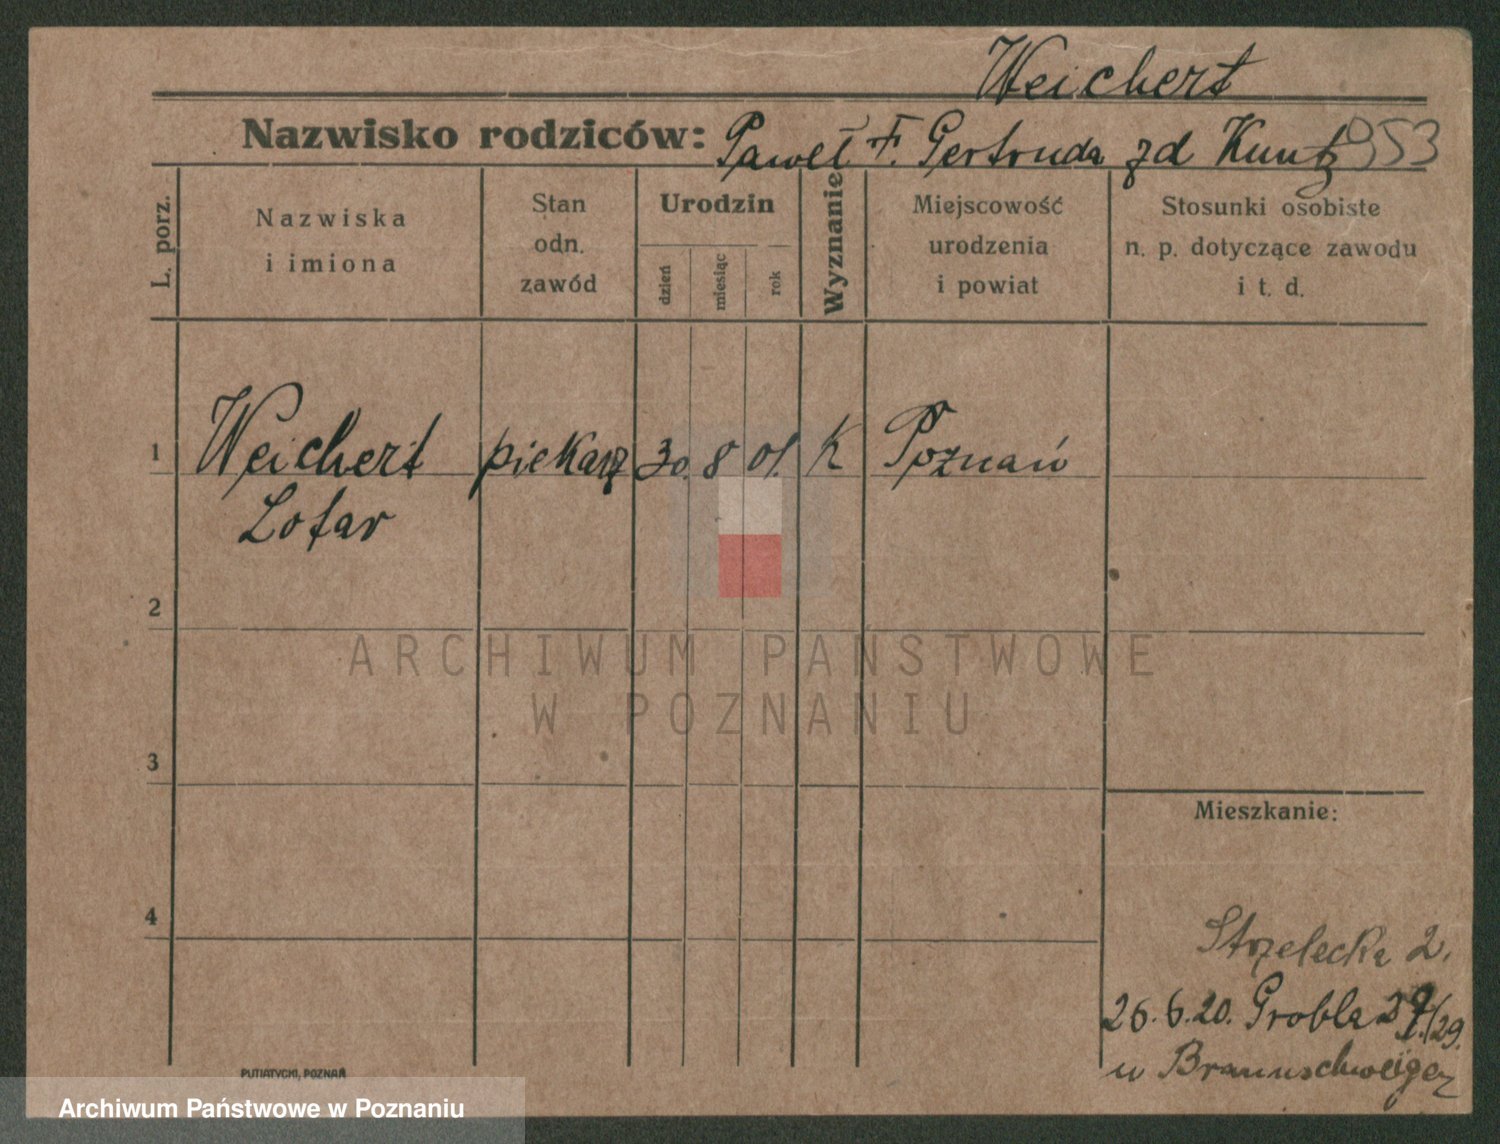 Weichert
Nazwisko rodziców: Paweł F. Gertruda zd Kuntz 953
L. porz.
Nazwiska
i imiona
Stan
odn.
zawód
Urodzin
dzień
miesiąc
rok
Wyznanie
Miejscowość
urodzenia
i powiat
Stosunki osobiste
n. p. dotyczące zawodu
i t. d.
1 Weichert piekarz 30. 8 01. K Poznań
Lotar
2
ARCHIWUM PAŃSTWOWE
W POZNANIU
3
Mieszkanie:
4
Strzelecka 2.
26.6.20. Grobla
u Braunschweiger
PUTIATYCKI, POZNAŃ
Archiwum Państwowe w Poznaniu